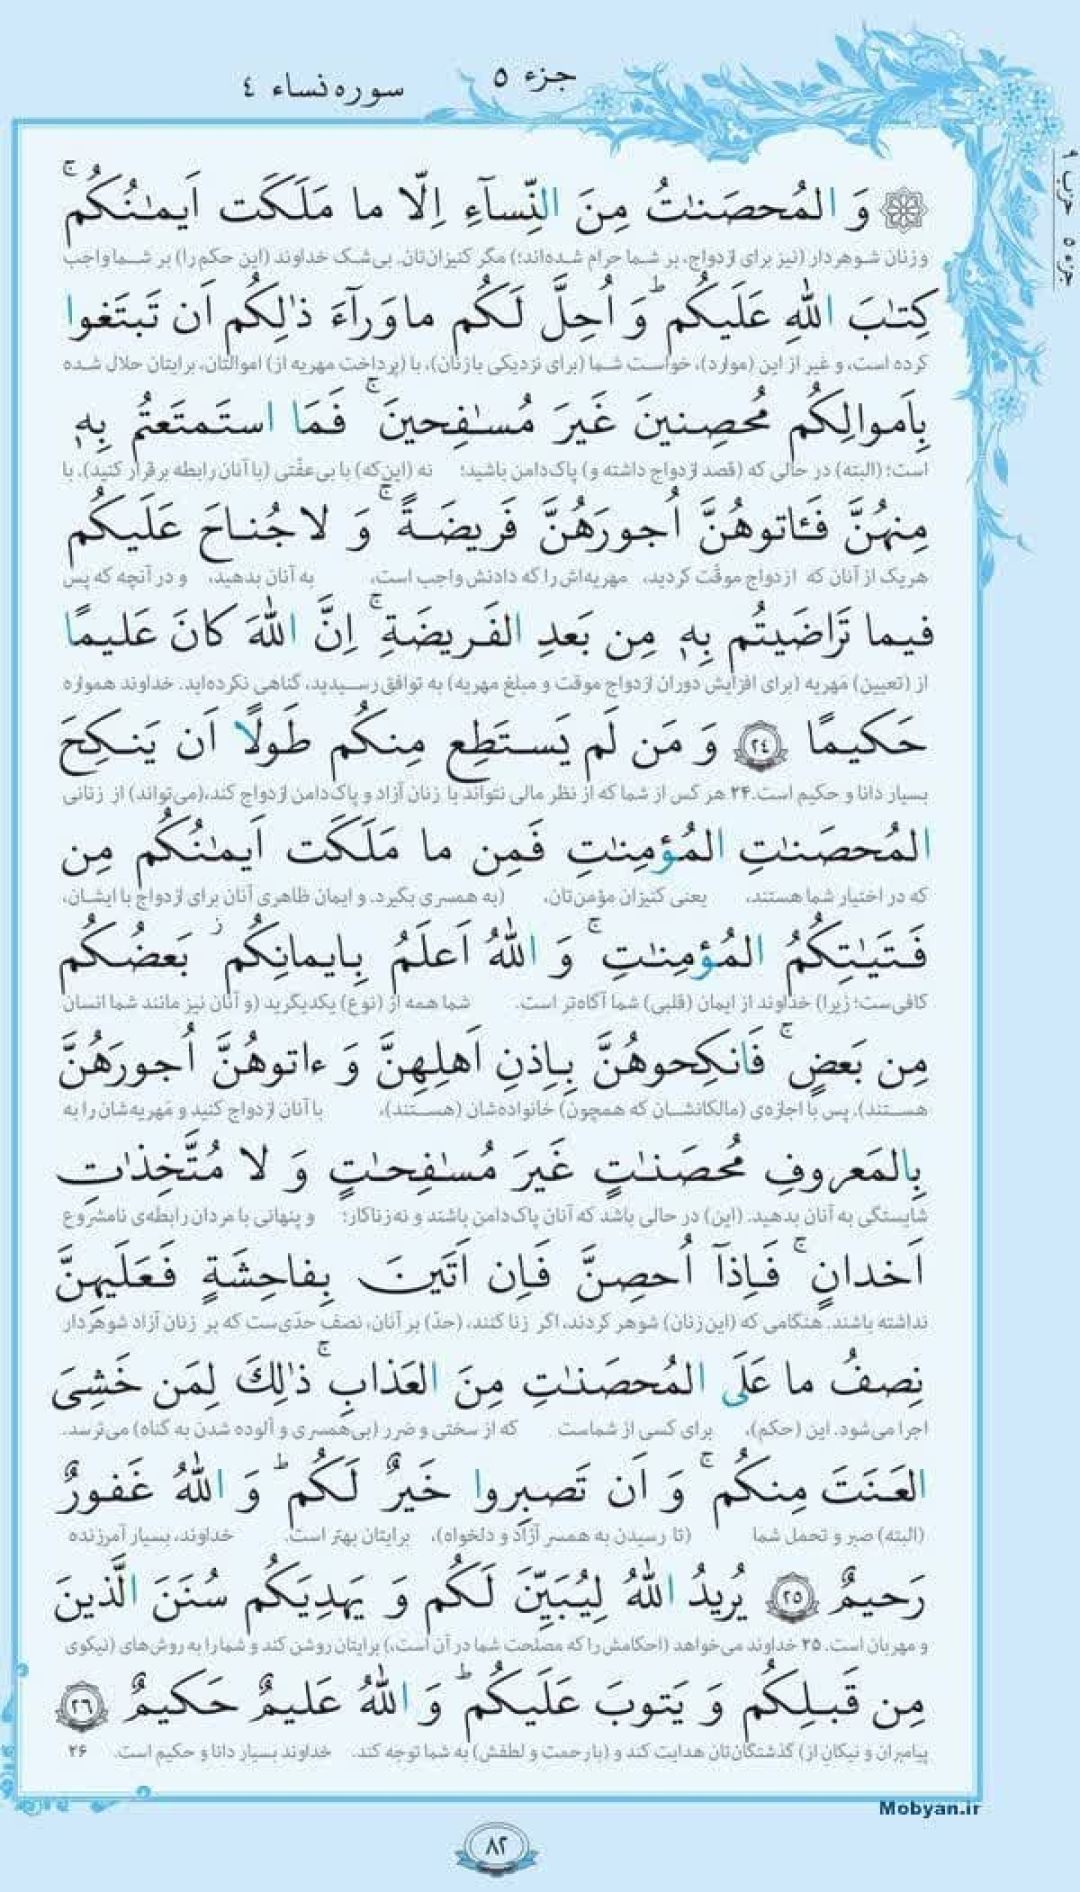 جزء ۵
سوره نساء ٤
حزب ۹ جزء ۵
وَ المُحصَنٰتُ مِنَ النِّسآءِ اِلّا ما مَلَكَت اَیمٰنُكُم ۚ
و زنان شوهردار (نیز برای ازدواج، بر شما حرام شده‌اند؛) مگر کنیزان‌تان. بی‌شک خداوند (این حکم را) بر شما واجب
كِتٰبَ اللهِ عَلَیكُم ۗ وَ اُحِلَّ لَكُم ماوَرآءَ ذٰلِكُم اَن تَبتَغوا
کرده است، و غیر از این (موارد)، خواست شما (برای نزدیکی با زنان)، با (پرداخت مهریه از) اموالتان، برایتان حلال شده
بِاَموالِكُم مُحصِنینَ غَیرَ مُسٰفِحینَ ۚ فَمَا استَمتَعتُم بِهٖ
است؛ (البته) در حالی که (قصد ازدواج داشته و) پاک‌دامن باشید؛ نه (این‌که) با بی‌عفّتی (با آنان رابطه برقرار کنید). با
مِنهُنَّ فَـٔاتوهُنَّ اُجورَهُنَّ فَریضَةً ۚ وَ لاجُناحَ عَلَیكُم
هریک از آنان که ازدواج موقّت کردید، مهریه‌اش را که دادنش واجب است، به آنان بدهید، و در آنچه که پس
فیما تَراضَیتُم بِهٖ مِن بَعدِ الفَریضَةِ ۚ اِنَّ اللهَ كانَ عَلیمًا
از (تعیین) مَهریه (برای افزایش دوران ازدواج موقت و مبلغ مهریه) به توافق رسیدید، گناهی نکرده‌اید. خداوند همواره
حَكیمًا ٢٤ وَ مَن لَم یَستَطِع مِنكُم طَولًا اَن یَنكِحَ
بسیار دانا و حکیم است. ۲۴ هر کس از شما که از نظر مالی نتواند با زنان آزاد و پاک‌دامن ازدواج کند، (می‌تواند) از زنانی
المُحصَنٰتِ المُؤمِنٰتِ فَمِن ما مَلَكَت اَیمٰنُكُم مِن
که در اختیار شما هستند، یعنی کنیزان مؤمن‌تان، (به همسری بگیرد. و ایمان ظاهری آنان برای ازدواج با ایشان،
فَتَیٰتِكُمُ المُؤمِنٰتِ ۚ وَ اللهُ اَعلَمُ بِایمانِكُم ز بَعضُكُم
کافی‌ست؛ زیرا) خداوند از ایمان (قلبی) شما آگاه‌تر است. شما همه از (نوع) یکدیگرید (و آنان نیز مانند شما انسان
مِن بَعضٍ ۚ فَانكِحوهُنَّ بِاِذنِ اَهلِهِنَّ وَ ءاتوهُنَّ اُجورَهُنَّ
هستند). پس با اجازه‌ی (مالکانشان که همچون) خانواده‌شان (هستند)، با آنان ازدواج کنید و مَهریه‌شان را به
بِالمَعروفِ مُحصَنٰتٍ غَیرَ مُسٰفِحٰتٍ وَ لا مُتَّخِذٰتِ
شایستگی به آنان بدهید. (این) در حالی باشد که آنان پاک‌دامن باشند و نه زناکار؛ و پنهانی با مردان رابطه‌ی نامشروع
اَخدانٍ ۚ فَاِذآ اُحصِنَّ فَاِن اَتَینَ بِفاحِشَةٍ فَعَلَیهِنَّ
نداشته باشند. هنگامی که (این زنان) شوهر کردند، اگر زنا کنند، (حدّ) بر آنان، نصف حدّی‌ست که بر زنان آزاد شوهردار
نِصفُ ما عَلَی المُحصَنٰتِ مِنَ العَذابِ ۚ ذٰلِكَ لِمَن خَشِیَ
اجرا می‌شود. این (حکم)، برای کسی از شماست که از سختی و ضرر (بی‌همسری و آلوده شدن به گناه) می‌ترسد.
العَنَتَ مِنكُم ۚ وَ اَن تَصبِروا خَیرٌ لَكُم ۗ وَ اللهُ غَفورٌ
(البته) صبر و تحمل شما (تا رسیدن به همسر آزاد و دلخواه)، برایتان بهتر است. خداوند، بسیار آمرزنده
رَحیمٌ ٢٥ یُریدُ اللهُ لِیُبَیِّنَ لَكُم وَ یَهدِیَكُم سُنَنَ الَّذینَ
و مهربان است. ۲۵ خداوند می‌خواهد (احکامش را که مصلحت شما در آن است،) برایتان روشن کند و شما را به روش‌های (نیکوی
مِن قَبلِكُم وَ یَتوبَ عَلَیكُم ۗ وَ اللهُ عَلیمٌ حَكیمٌ ٢٦
پیامبران و نیکان از) گذشتگان‌تان هدایت کند و (با رحمت و لطفش) به شما توجه کند. خداوند بسیار دانا و حکیم است. ۲۶
Mobyan.ir
۸۲